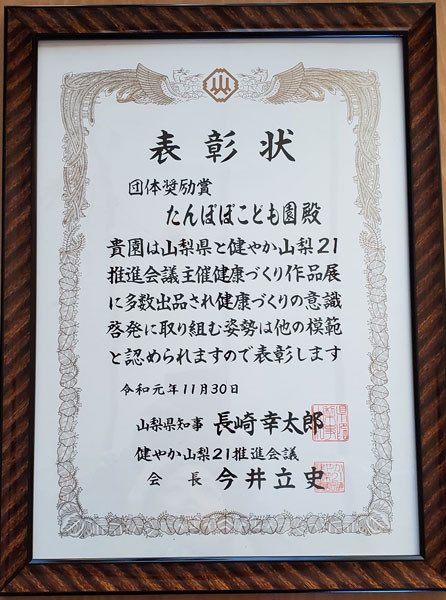 表彰状
団体奨励賞
たんぽぽこども園殿
貴園は山梨県と健やか山梨21
推進会議主催健康づくり作品展
に多数出品され健康づくりの意識
啓発に取り組む姿勢は他の模範
と認められますので表彰します
令和元年11月30日
山梨県知事 長崎幸太郎
健やか山梨21推進会議
会長 今井立史